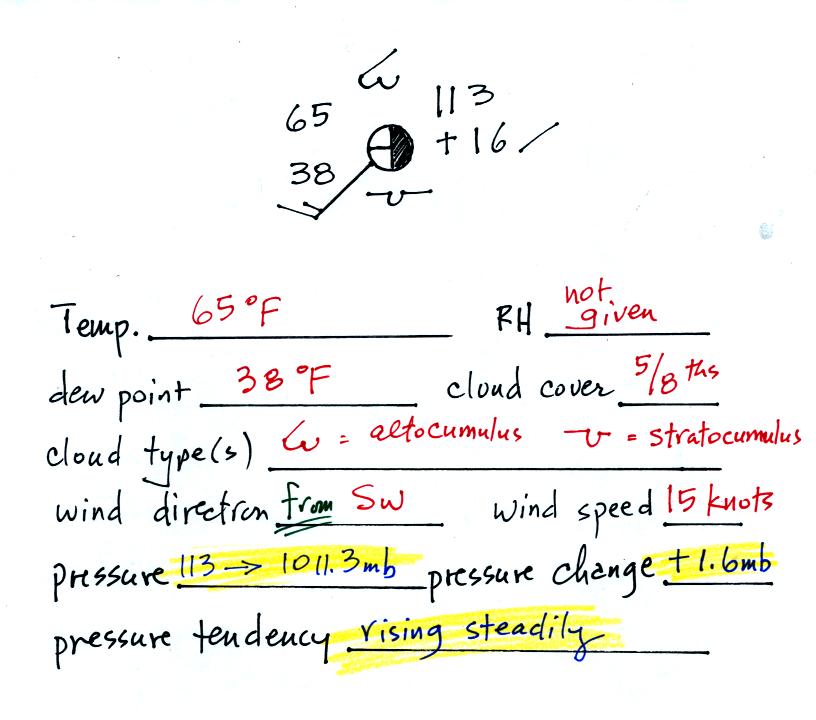 65 113
38 +16
Temp. 65°F RH not given
dew point 38°F cloud cover 5/8 ths
cloud type(s) = altocumulus = stratocumulus
wind direction from SW wind speed 15 knots
pressure 113 → 1011.3mb pressure change +1.6mb
pressure tendency rising steadily